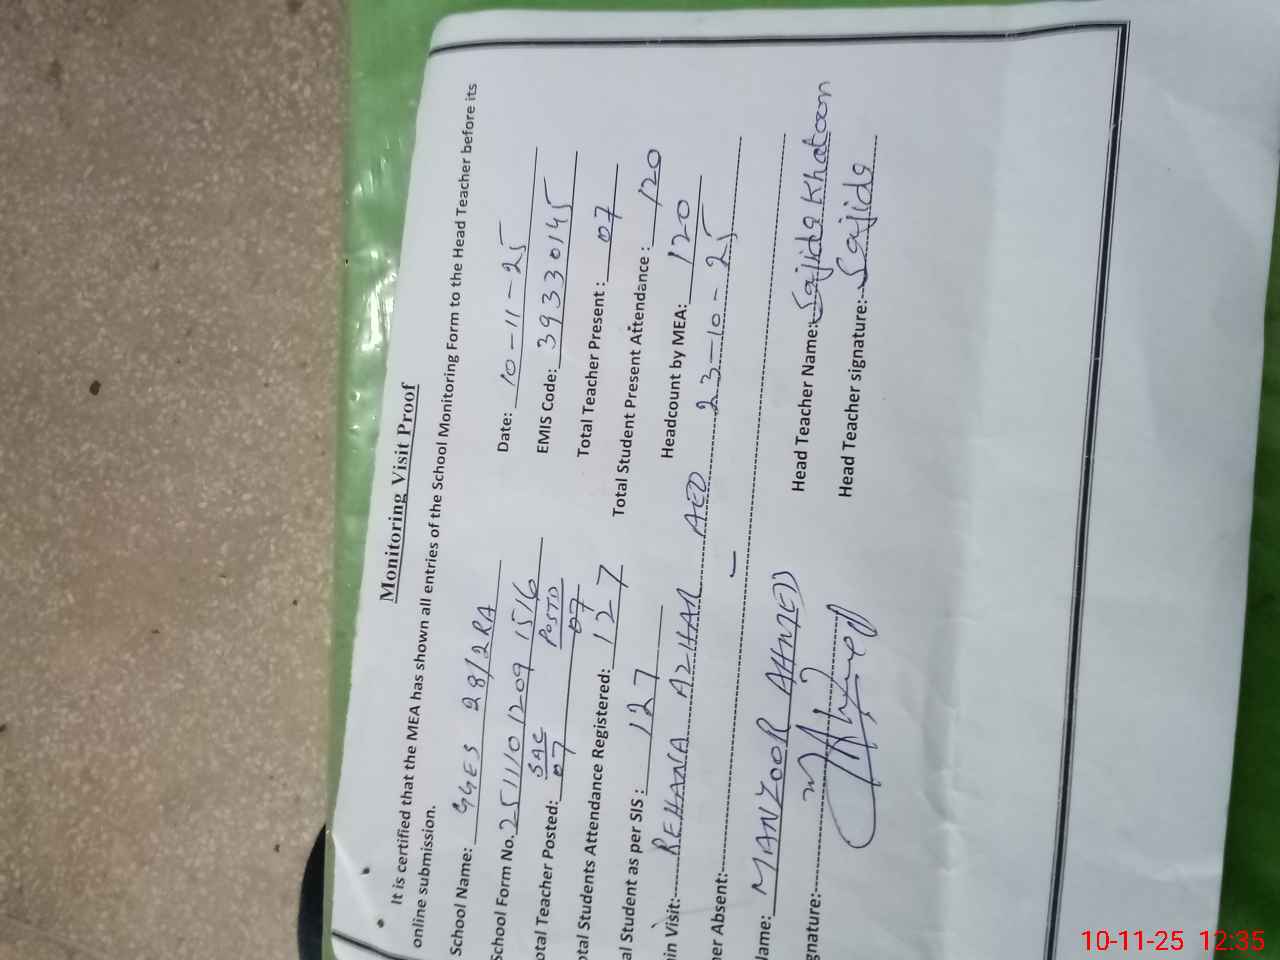 Monitoring Visit Proof
It is certified that the MEA has shown all entries of the School Monitoring Form to the Head Teacher before its
online submission.
School Name: GGES 28/2RA Date: 10-11-25
School Form No. 251110 1209 1516 EMIS Code: 39330145
SAC POSTD
otal Teacher Posted: 07 07 Total Teacher Present: 07
otal Students Attendance Registered: 127 Total Student Present Attendance: 120
al Student as per SIS: 127 Headcount by MEA: 120
in Visit: REHANA AZHAR AEO 23-10-25
er Absent: –
Name: MANZOOR AHMED Head Teacher Name: Sajida Khatoon
gnature: Head Teacher signature: Sajida
10-11-25 12:35